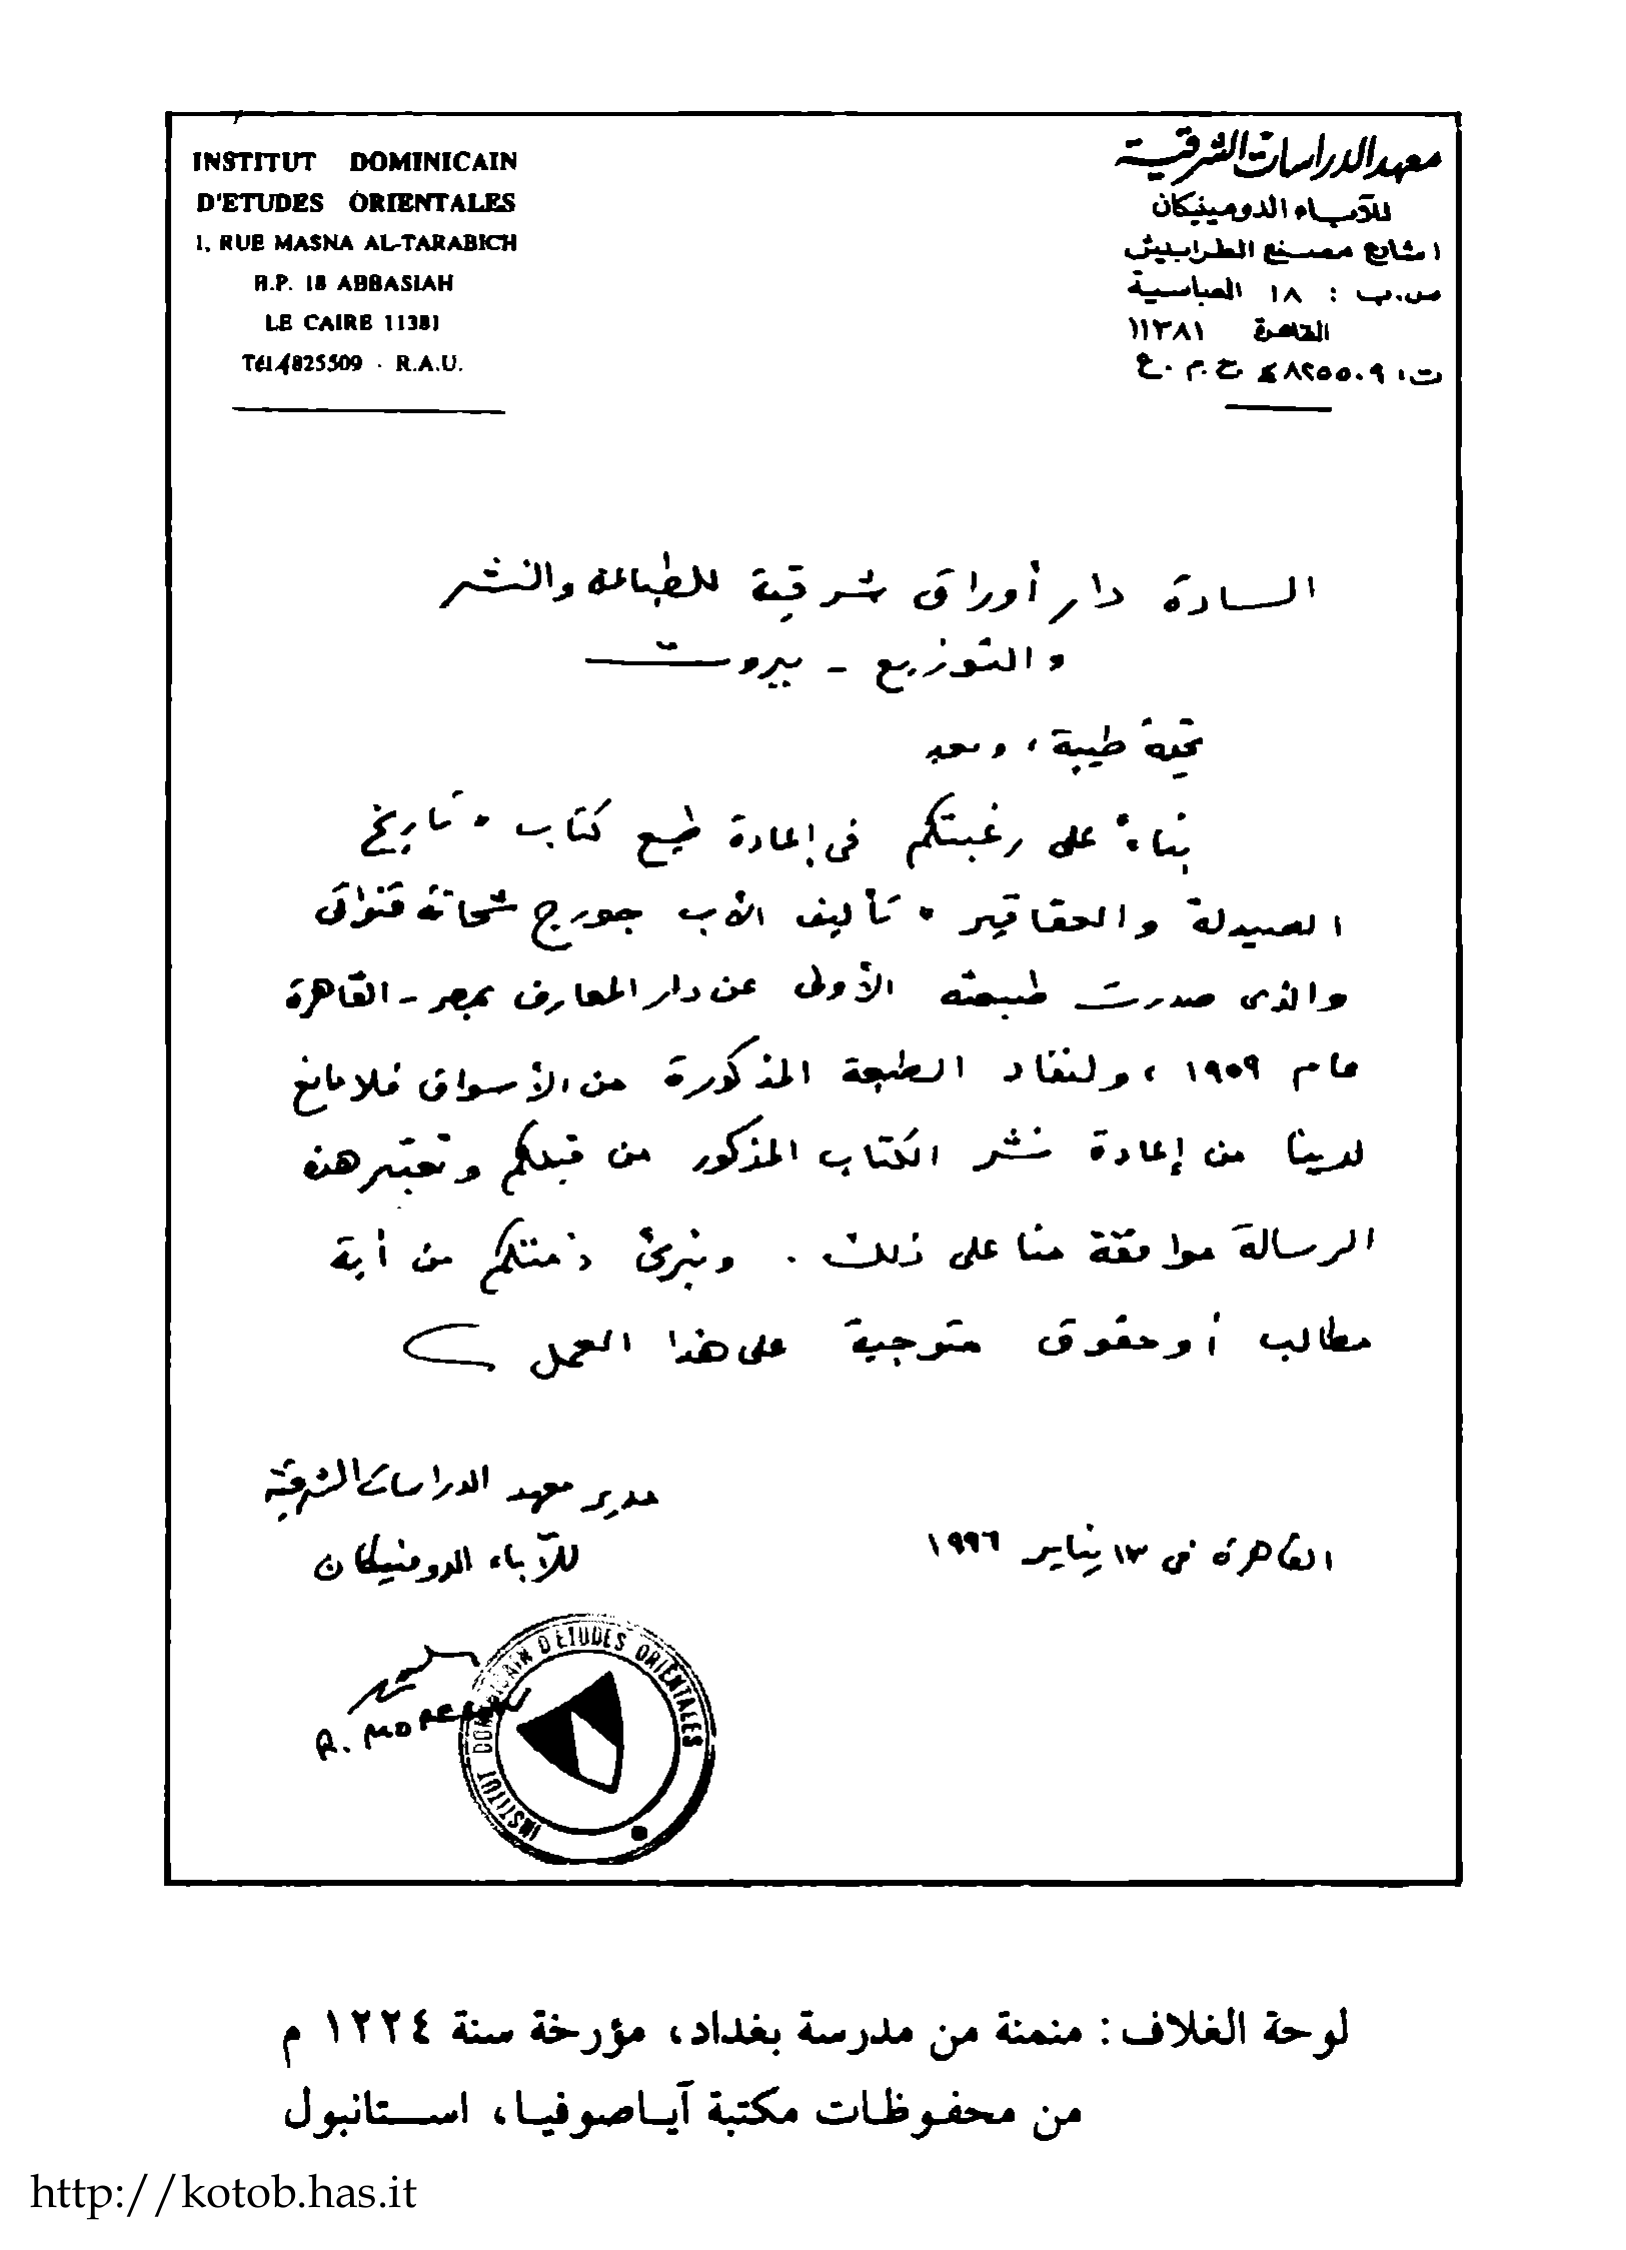 INSTITUT DOMINICAIN
D'ETUDES ORIENTALES
1, RUE MASNA AL-TARABICH
B.P. 18 ABBASIAH
LE CAIRE 11381
Tél 4825509 · R.A.U.
معهد الدراسات الشرقية
للآباء الدومينيكان
١ شارع مصنع الطرابيش
ص.ب : ١٨ العباسية
القاهرة ١١٣٨١
ت: ٤٨٢٥٥٠٩ ج.م.ع
السادة دار أوراق شرقية للطباعة والنشر
والتوزيع - بيروت
تحية طيبة ، وبعد
بناءً على رغبتكم فى إعادة طبع كتاب " تاريخ
الصيدلة والعقاقير " تأليف الأب جورج شحاته قنواتى
والذى صدرت طبعته الأولى عن دار المعارف بمصر - القاهرة
عام ١٩٥٩ ، ولنفاد الطبعة المذكورة من الأسواق فلا مانع
لدينا من إعادة نشر الكتاب المذكور من قبلكم وتعتبر هذه
الرسالة موافقة منا على ذلك . ونبرئ ذمتكم من أية
مطالب أو حقوق متوجبة على هذا العمل
القاهرة فى ١٣ يناير ١٩٩٦
مدير معهد الدراسات الشرقية
للآباء الدومنيكان
R. MORELON
INSTITUT DOMINICAIN D'ETUDES ORIENTALES
لوحة الغلاف : منمنة من مدرسة بغداد، مؤرخة سنة ١٢٢٤ م
من محفوظات مكتبة آياصوفيا، استانبول
http://kotob.has.it